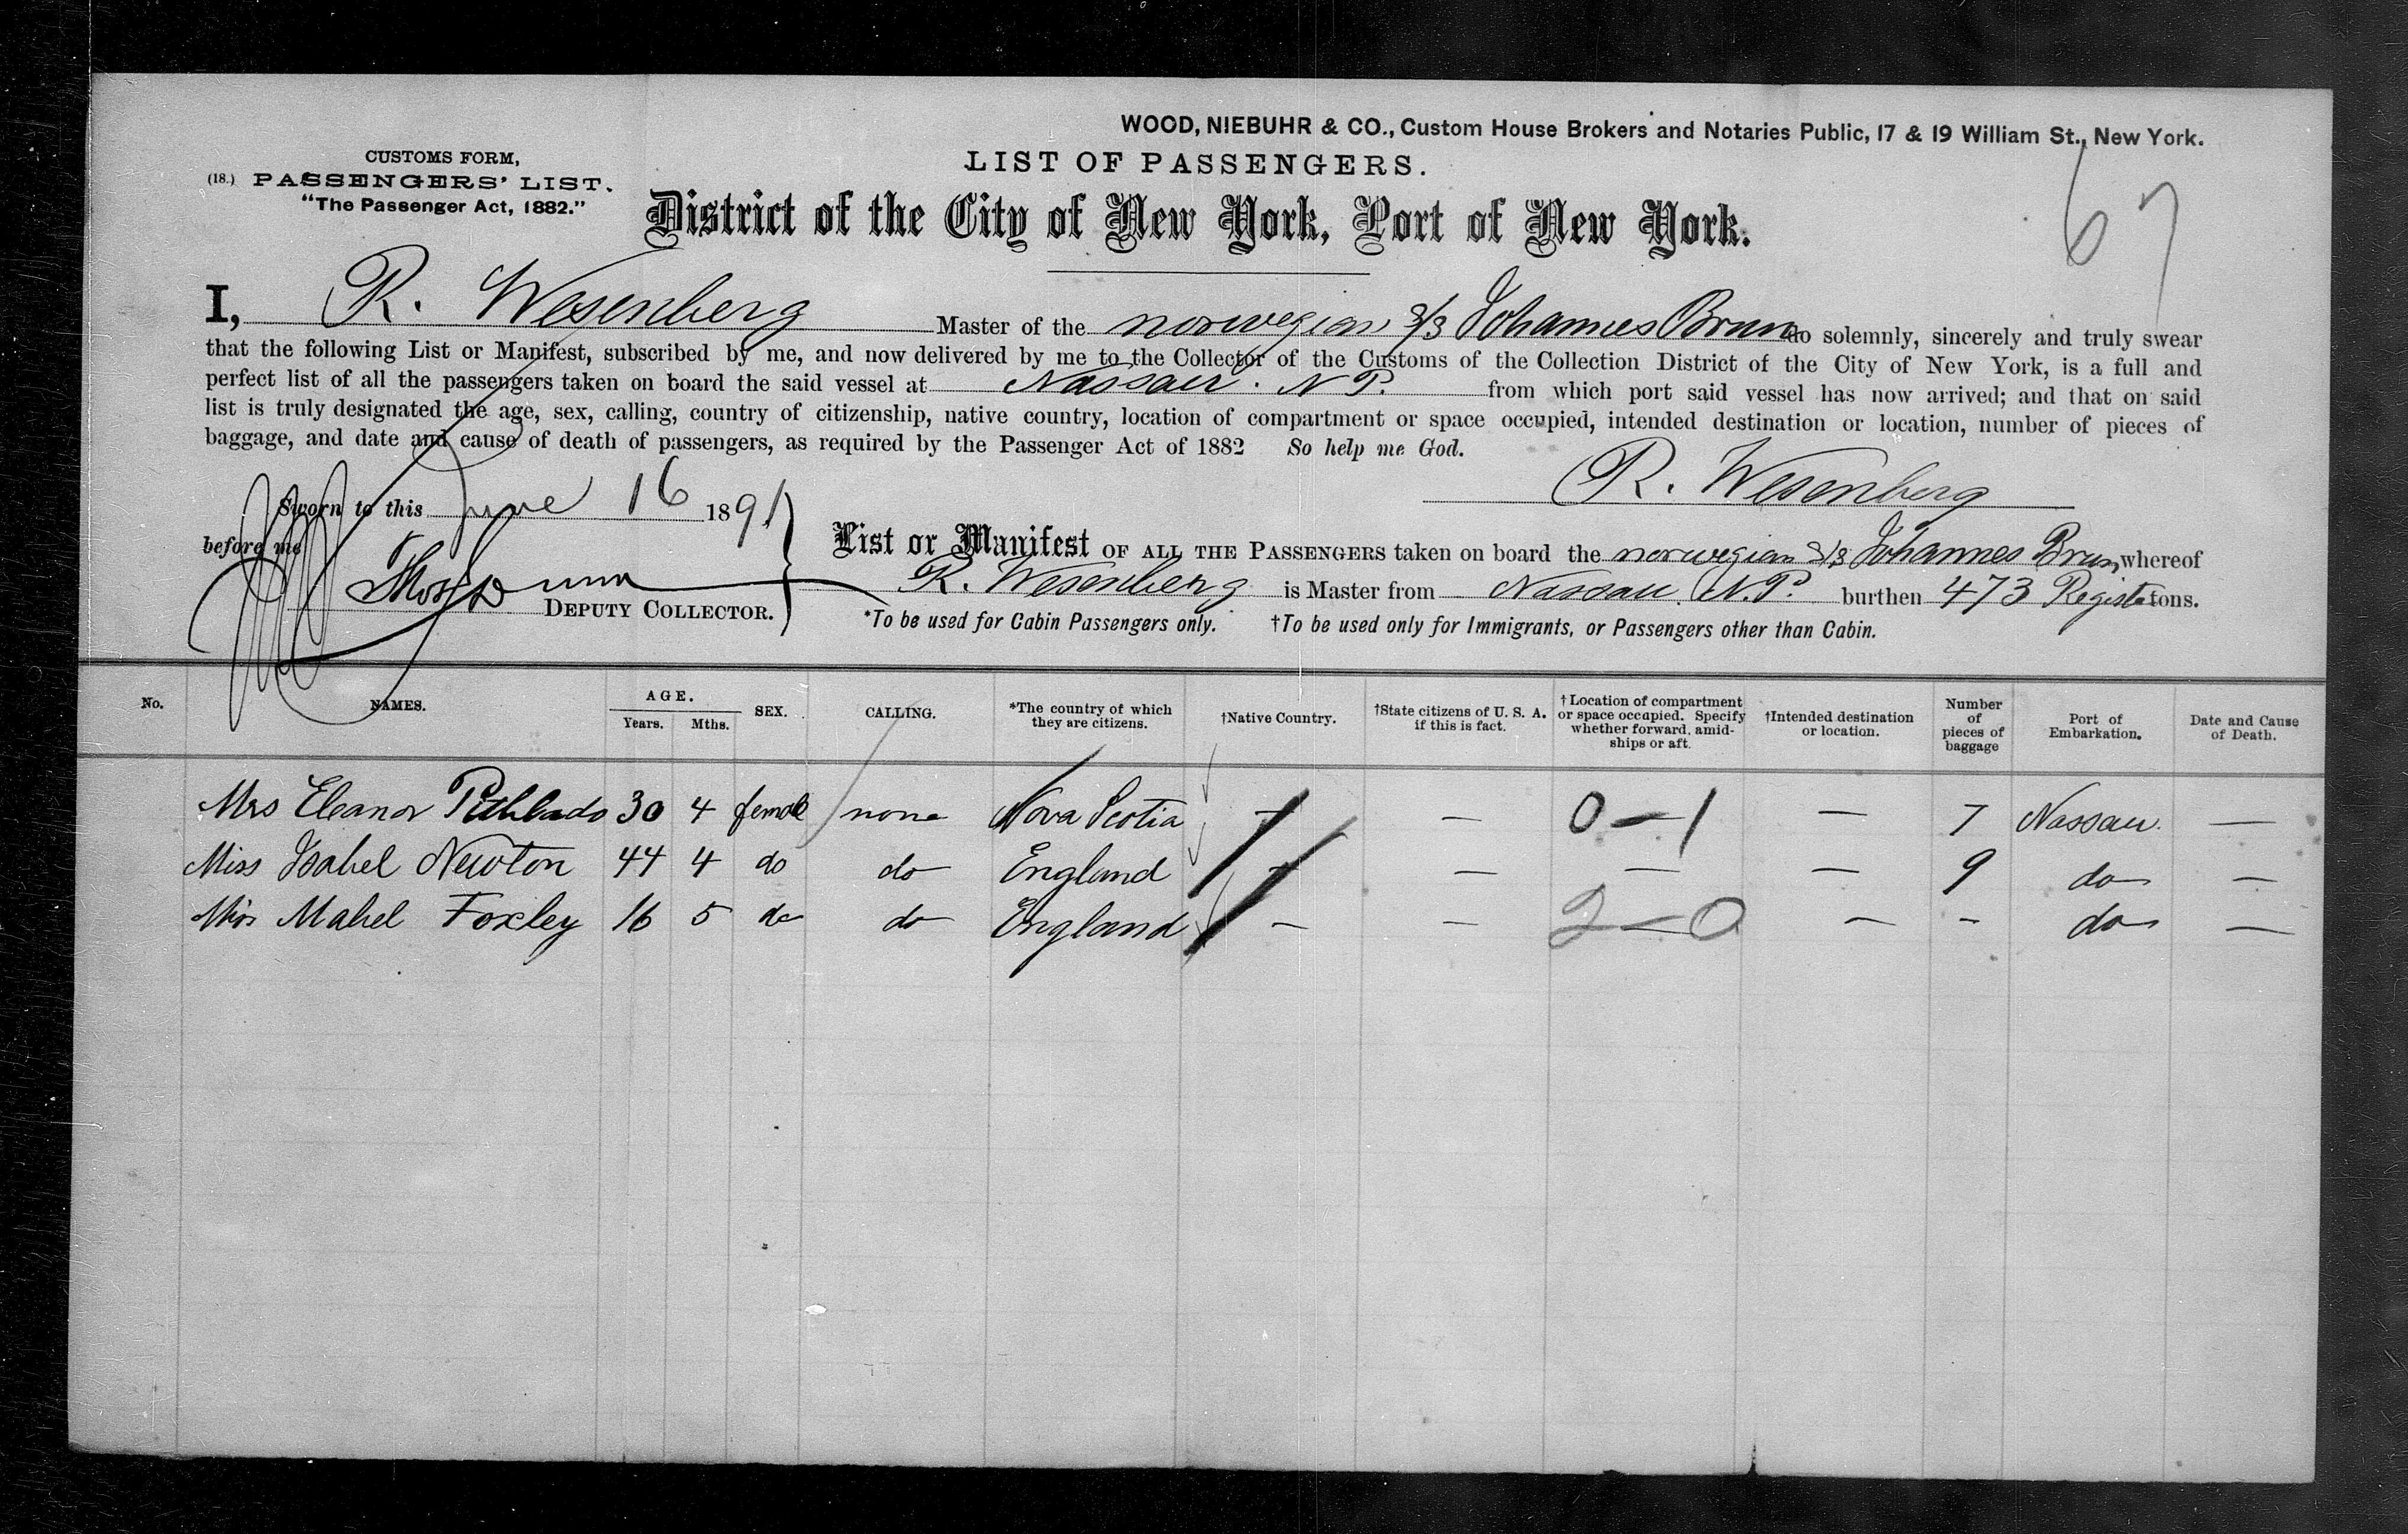 WOOD, NIEBUHR & CO., Custom House Brokers and Notaries Public, 17 & 19 William St., New York.
CUSTOMS FORM,
(18.) PASSENGERS' LIST.
"The Passenger Act, 1882."
LIST OF PASSENGERS.
District of the City of New York, Port of New York.
67
I, R. Wesenberg Master of the norwegian S/S Johannes Brun do solemnly, sincerely and truly swear
that the following List or Manifest, subscribed by me, and now delivered by me to the Collector of the Customs of the Collection District of the City of New York, is a full and
perfect list of all the passengers taken on board the said vessel at Nassau. N P. from which port said vessel has now arrived; and that on said
list is truly designated the age, sex, calling, country of citizenship, native country, location of compartment or space occupied, intended destination or location, number of pieces of
baggage, and date and cause of death of passengers, as required by the Passenger Act of 1882 So help me God.
R. Wesenberg
Sworn to this June 16 1891
before me
Thos Dunn
DEPUTY COLLECTOR.
List or Manifest OF ALL THE PASSENGERS taken on board the norwegian S/S Johannes Brun whereof
R. Wesenberg is Master from Nassau N.P. burthen 473 Register tons.
*To be used for Cabin Passengers only. †To be used only for Immigrants, or Passengers other than Cabin.
No. NAMES. AGE. Years. Mths. SEX. CALLING. *The country of which they are citizens. †Native Country. †State citizens of U. S. A. if this is fact. †Location of compartment or space occupied. Specify whether forward, amidships or aft. †Intended destination or location. Number of pieces of baggage Port of Embarkation. Date and Cause of Death.
Mrs Eleanor Pithlado 30 4 female none Nova Scotia — — 0—1 — 7 Nassau. —
Miss Isabel Newton 44 4 do do England — — — — 9 do —
Miss Mabel Foxley 16 5 do do England — — 2—0 — - do —